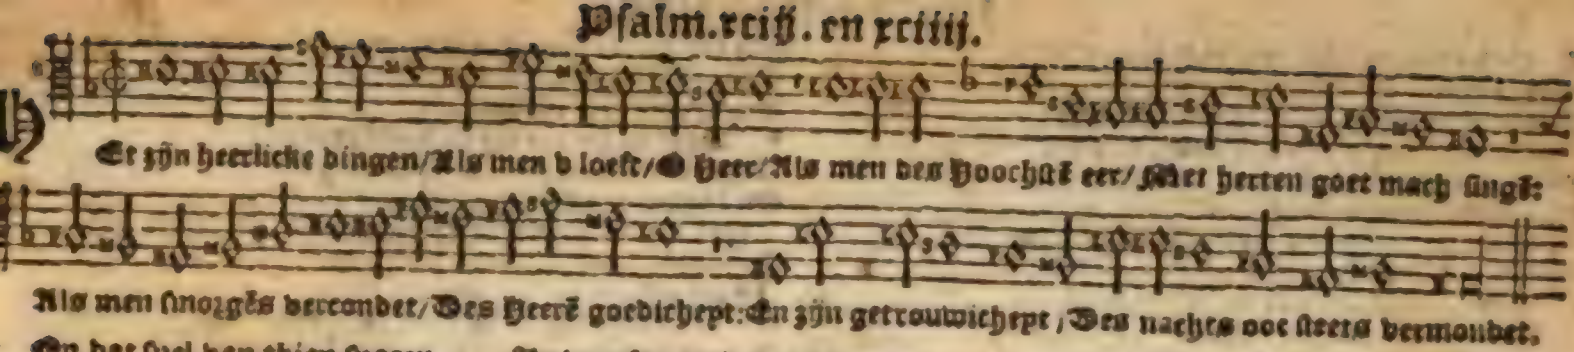 Psalm. xciij. en xciiij.
Et zijn heerlicke dingen/Als men v loeft/O Heer/Als men des Hoochstē eer/Met herten goet mach singē:
Als men smorgēs vercondet/Des Heerē goedicheyt: En zijn getrouwicheyt, Des nachts ooc steets vermondet.